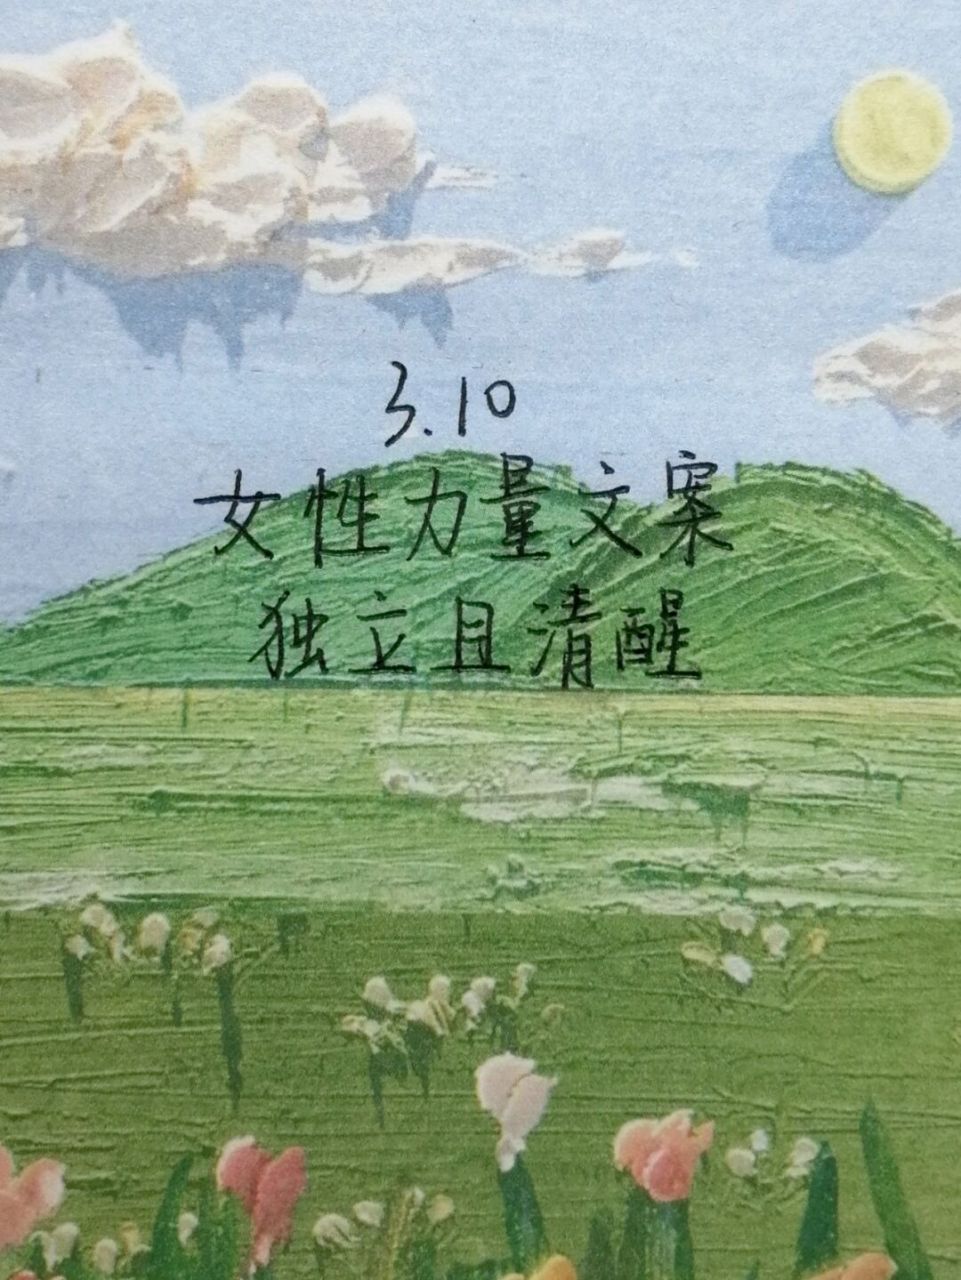 3.10
女性力量文案
独立且清醒